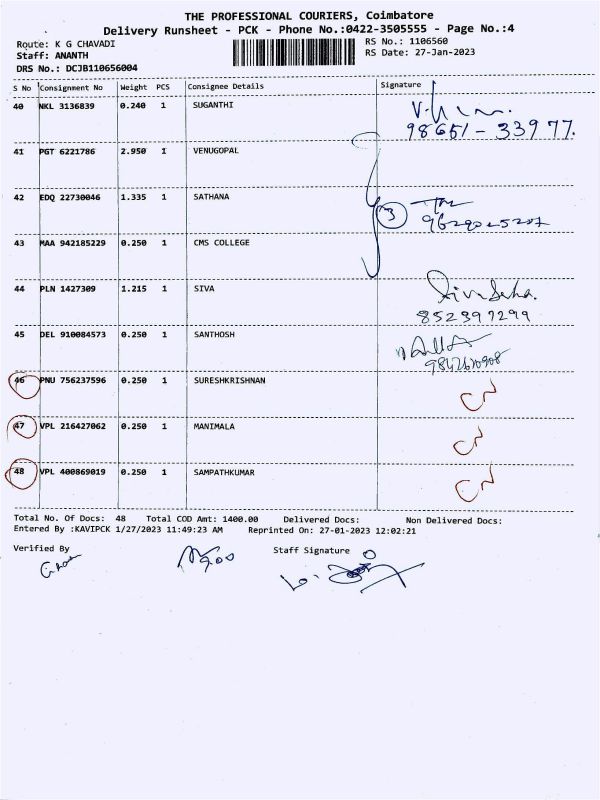 THE PROFESSIONAL COURIERS, Coimbatore
Delivery Runsheet - PCK - Phone No.:0422-3505555 - Page No.:4
Route: K G CHAVADI
RS No.: 1106560
Staff: ANANTH
RS Date: 27-Jan-2023
DRS No.: DCJB110656004
S No Consignment No Weight PCS Consignee Details Signature
40 NKL 3136839 0.240 1 SUGANTHI
98651-33977.
41 PGT 6221786 2.950 1 VENUGOPAL
42 EDQ 22730046 1.335 1 SATHANA
3
43 MAA 942185229 0.250 1 CMS COLLEGE
44 PLN 1427309 1.215 1 SIVA
8523997299
45 DEL 910084573 0.250 1 SANTHOSH
46 PNU 756237596 0.250 1 SURESHKRISHNAN CN
47 VPL 216427062 0.250 1 MANIMALA CN
48 VPL 400869019 0.250 1 SAMPATHKUMAR CN
Total No. Of Docs: 48 Total COD Amt: 1400.00 Delivered Docs: Non Delivered Docs:
Entered By :KAVIPCK 1/27/2023 11:49:23 AM Reprinted On: 27-01-2023 12:02:21
Verified By Staff Signature